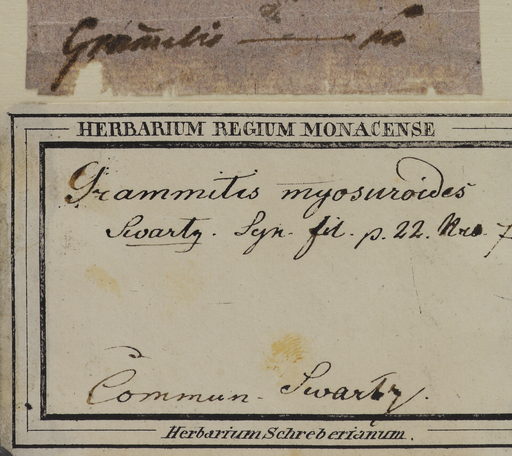 Grammitis
HERBARIUM REGIUM MONACENSE
Grammitis myosuroides
Swartz. Syn. fil. p. 22. Nro. 7
Commun. Swartz.
Herbarium Schreberianum.